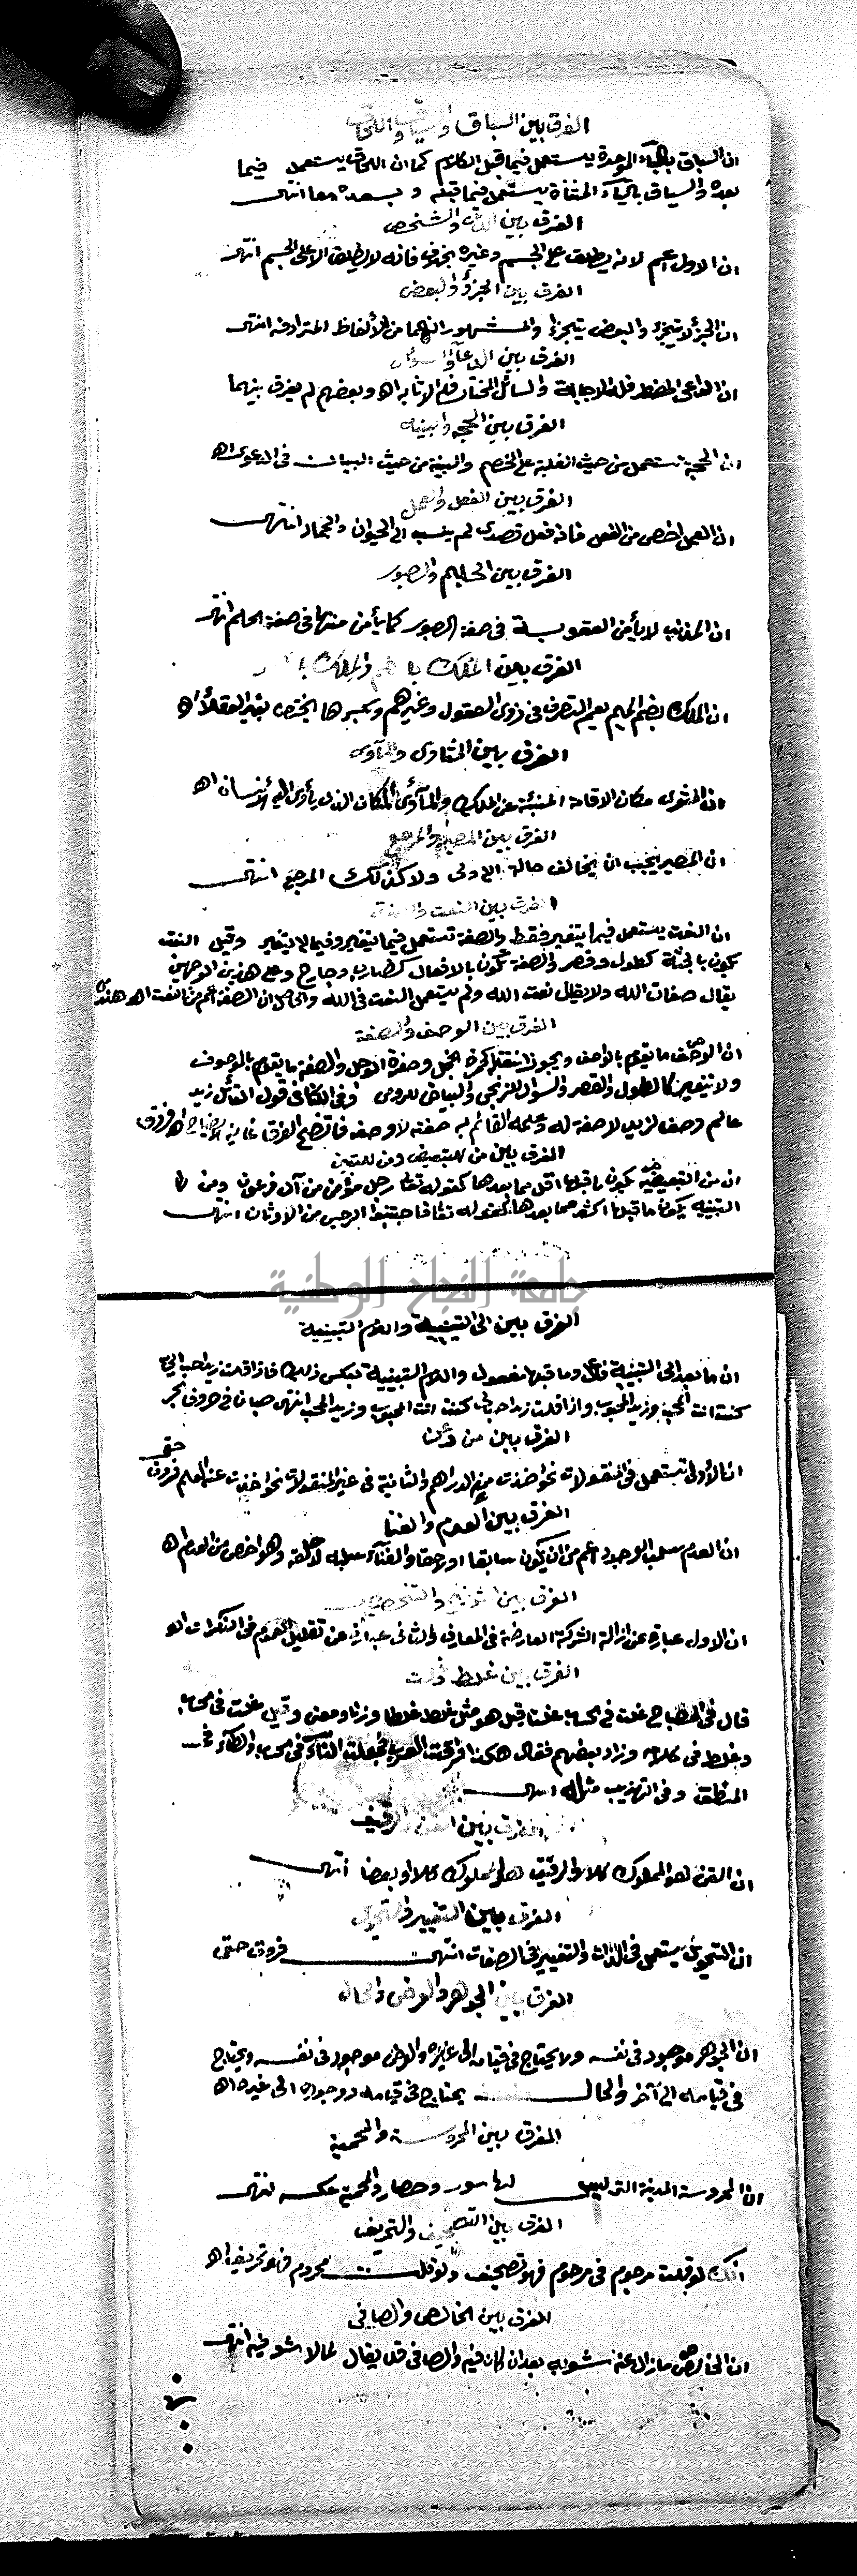 الفرق بين السباق والسياق واللحاق
ان السباق بالباء الموحدة يستعمل فيما قبل الكلام كما ان اللحاق يستعمل فيما
بعده والسياق بالياء المثناة يستعمل فيما قبله وبعده معا انتهى
الفرق بين الذات والشخص
ان الاول اعم لانه يطلق على الجسم وغيره بخلاف فانه لا يطلق الا على الجسم انتهى
الفرق بين الجزؤ والبعض
ان الجزؤ لا يتجزء والبعض يتجزء والمشهور انهما من الألفاظ المترادفة انتهى
الفرق بين الدعاء والسؤال
ان الداعى المضطر فله الاجابة والسائل المختار فله الاثابة اه وبعضهم لم يفرق بينهما
الفرق بين الحجه والبينه
ان الحجة تستعمل من حيث الغلبة على الخصم والبينة من حيث البيان فى الدعوى اه
الفرق بين الفعل والعمل
ان العمل اخص من الفعل فانه فعل قصدى لم ينسب الى الحيوان والجماد انتهى
الفرق بين الحليم والصبور
ان المذنب لا يأمن العقوبة فى صفة الصبور كما يأمن منها فى صفة الحلم انتهى
الفرق بين الملك بالضم والملك بالكسر
ان الملك بضم الميم يعم التصرف فى ذوى العقول وغيرهم وبكسرها يختص بغير العقلاء اه
الفرق بين المثوى والمأوى
ان المثوى مكان الاقامة المنبئة عن الملك والمأوى المكان الذى يأوى اليه الانسان اه
الفرق بين المصير والمرجع
ان المصير يجب ان يخالف حالة الاولى ولا كذلك المرجع انتهى
الفرق بين النعت والصفة
ان النعت يستعمل فيما يتغير فقط والصفة تستعمل فيما يتغير وفيما لا يتغير وقيل النعت
يكون بالجثة كطول وقصر والصفة تكون بالافعال كضارب وجارح وعلى هذين الوجهين
يقال صفات الله ولا يقال نعت الله ولم يستعمل النعت فى الله والحاصل ان الصفة اعم من النعت اه
الفرق بين الوصف والصفة
ان الوصف ما يقوم بالواصف ويجوز انتقاله كحمرة الخجل وصفرة الوجل والصفة ما يقوم بالموصوف
ولا يتغير كالطول والقصر والسواد للزنجى والبياض للرومى وفى الكافى قول القائل زيد
عالم وصف لزيد لا صفة له وعلمه القائم به صفته لا وصفه فاتضح الفرق غاية الايضاح اه فروق
الفرق بين من للتبعيض ومن للتبيين
ان من التبعيضية يكون ما قبلها اقل مما بعدها كقوله تعالى رجل مؤمن من آل فرعون ومن
التبينية يكون ما قبلها اكثر مما بعدها كقوله تعالى فاجتنبوا الرجس من الاوثان انتهى
جامعة النجاح الوطنية
الفرق بين الى التبينية واللام التبينية
ان ما بعد الى التبينية فاعل وما قبلها مفعول واللام التبينية بعكس ذلك فاذا قلت زيد احب الى
كنت انت المحب وزيد المحبوب واذا قلت زيد احب لى كنت انت المحبوب وزيد المحب انتهى صبان فى حروف الجر
الفرق بين من وعن
ان الأولى تستعمل فى المنقولات نحو اخذت من الدراهم والثانية فى غير المنقولات نحو اخذت عنه العلم فروق حقى
الفرق بين العدم والفنا
ان العدم سلب الوجود اعم من ان يكون سابقا او لاحقا والفناء سلبه لاحقه وهو اخص من العدم اه
الفرق بين التوضيح والتخصيص
ان الاول عبارة عن ازالة الشركة العارضة فى المعارف والثانى عبارة عن تقليل العموم فى النكرات اه
الفرق بين غلط وغلت
قال فى المصباح غلت فى الحساب غلتا قيل هو مثل غلط غلطا وزنا ومعنى وقيل غلت فى حسابه
وغلط فى كلامه وزاد بعضهم فقال هكذا فرقت العرب فجعلت التاء فى الحساب والطاء فى
المنطق وفى التهذيب مثله انتهى
الفرق بين القن والرقيق
ان القن هو المملوك كلا والرقيق هو المملوك كلا او بعضا انتهى
الفرق بين التغيير والتحويل
ان التحويل يستعمل فى الذات والتغيير فى الصفات انتهى فروق حقى
الفرق بين الجوهر والعرض والحال
ان الجوهر موجود فى نفسه ولا يحتاج فى قيامه الى غيره والعرض موجود فى نفسه ويحتاج
فى قيامه الى آخر والحال يحتاج فى قيامه ووجوده الى غيره اه
الفرق بين المحروسة والمحمية
ان المحروسة المدينة التى ليس لها سور وحصار والمحمية عكسه انتهى
الفرق بين التصحيف والتحريف
انك لو قلت مرجوم فى مرحوم فهو تصحيف ولو قلت محروم فهو تحريف اه
الفرق بين الخالص والصافى
ان الخالص ما زال عنه شوبه بعد ان كان فيه والصافى قد يقال لما لا شوب فيه انتهى